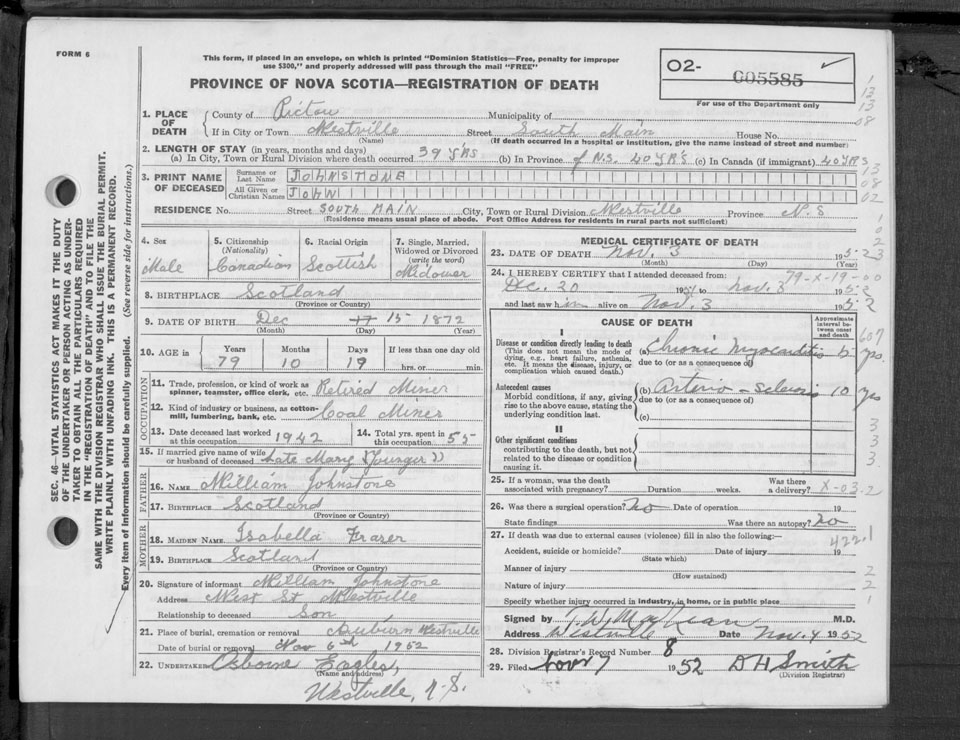 FORM 6
This form, if placed in an envelope, on which is printed "Dominion Statistics—Free, penalty for improper
use $300," and properly addressed will pass through the mail "FREE"
PROVINCE OF NOVA SCOTIA—REGISTRATION OF DEATH
02- 005585 ✓
For use of the Department only
1. PLACE OF DEATH
County of Pictou Municipality of
If in City or Town Westville Street South Main House No.
(Name) (If death occurred in a hospital or institution, give the name instead of street and number)
2. LENGTH OF STAY (in years, months and days)
(a) In City, Town or Rural Division where death occurred 39 Y'RS (b) In Province of N.S. 40 YR'S (c) In Canada (if immigrant) 40 YRS
3. PRINT NAME OF DECEASED
Surname or Last Name JOHNSTONE
All Given or Christian Names JOHN
RESIDENCE No. Street SOUTH MAIN City, Town or Rural Division Westville Province N.S
(Residence means usual place of abode. Post Office Address for residents in rural parts not sufficient)
4. Sex Male
5. Citizenship (Nationality) Canadian
6. Racial Origin Scottish
7. Single, Married, Widowed or Divorced (write the word) Widower
8. BIRTHPLACE Scotland
(Province or Country)
9. DATE OF BIRTH Dec 15 1872
(Month) (Day) (Year)
10. AGE in Years 79 Months 10 Days 19 If less than one day old hrs. or min.
OCCUPATION
11. Trade, profession, or kind of work as spinner, teamster, office clerk, etc. Retired Miner
12. Kind of industry or business, as cotton-mill, lumbering, bank, etc. Coal Miner
13. Date deceased last worked at this occupation 1942
14. Total yrs. spent in this occupation 55
15. If married give name of wife or husband of deceased Late Mary (Younger)
FATHER
16. NAME William Johnstone
17. BIRTHPLACE Scotland
(Province or Country)
MOTHER
18. MAIDEN NAME Isabella Fraser
19. BIRTHPLACE Scotland
(Province or Country)
20. Signature of informant William Johnstone
Address West St Westville
Relationship to deceased Son
21. Place of burial, cremation or removal Auburn Westville
Date of burial or removal Nov 6th 1952
22. UNDERTAKER Osborne Eagles
(Name and address)
Westville, N.S.
MEDICAL CERTIFICATE OF DEATH
23. DATE OF DEATH Nov. 3 1952
(Month) (Day) (Year)
24. I HEREBY CERTIFY that I attended deceased from: 79-X-19-00
Dec. 20 1951 to Nov. 3 1952
and last saw him alive on Nov. 3 1952
CAUSE OF DEATH
Approximate interval between onset and death
I
Disease or condition directly leading to death
(This does not mean the mode of dying, e.g., heart failure, asthenia, etc. It means the disease, injury, or complication which caused death.)
(a) Chronic Myocarditis 5 yrs.
due to (or as a consequence of)
Antecedent causes
Morbid conditions, if any, giving rise to the above cause, stating the underlying condition last.
(b) Arterio-sclerosis 10 yrs
due to (or as a consequence of)
(c)
II
Other significant conditions
contributing to the death, but not related to the disease or condition causing it.
25. If a woman, was the death associated with pregnancy? Duration weeks. Was there a delivery? X-03-2
26. Was there a surgical operation? No Date of operation 19
State findings Was there an autopsy? No
27. If death was due to external causes (violence) fill in also the following:— 422.1
Accident, suicide or homicide? Date of injury 19
(State which)
Manner of injury
(How sustained)
Nature of injury
Specify whether injury occurred in industry, in home, or in public place
Signed by M.D.
Address Westville Date Nov. 4 1952
28. Division Registrar's Record Number 8
29. Filed Nov 7 1952 D H Smith
(Division Registrar)
SEC. 46—VITAL STATISTICS ACT MAKES IT THE DUTY
OF THE UNDERTAKER OR PERSON ACTING AS UNDER-
TAKER TO OBTAIN ALL THE PARTICULARS REQUIRED
IN THE "REGISTRATION OF DEATH" AND TO FILE THE
SAME WITH THE DIVISION REGISTRAR WHO SHALL ISSUE THE BURIAL PERMIT.
WRITE PLAINLY WITH UNFADING INK. THIS IS A PERMANENT RECORD.
Every item of information should be carefully supplied. (See reverse side for instructions.)